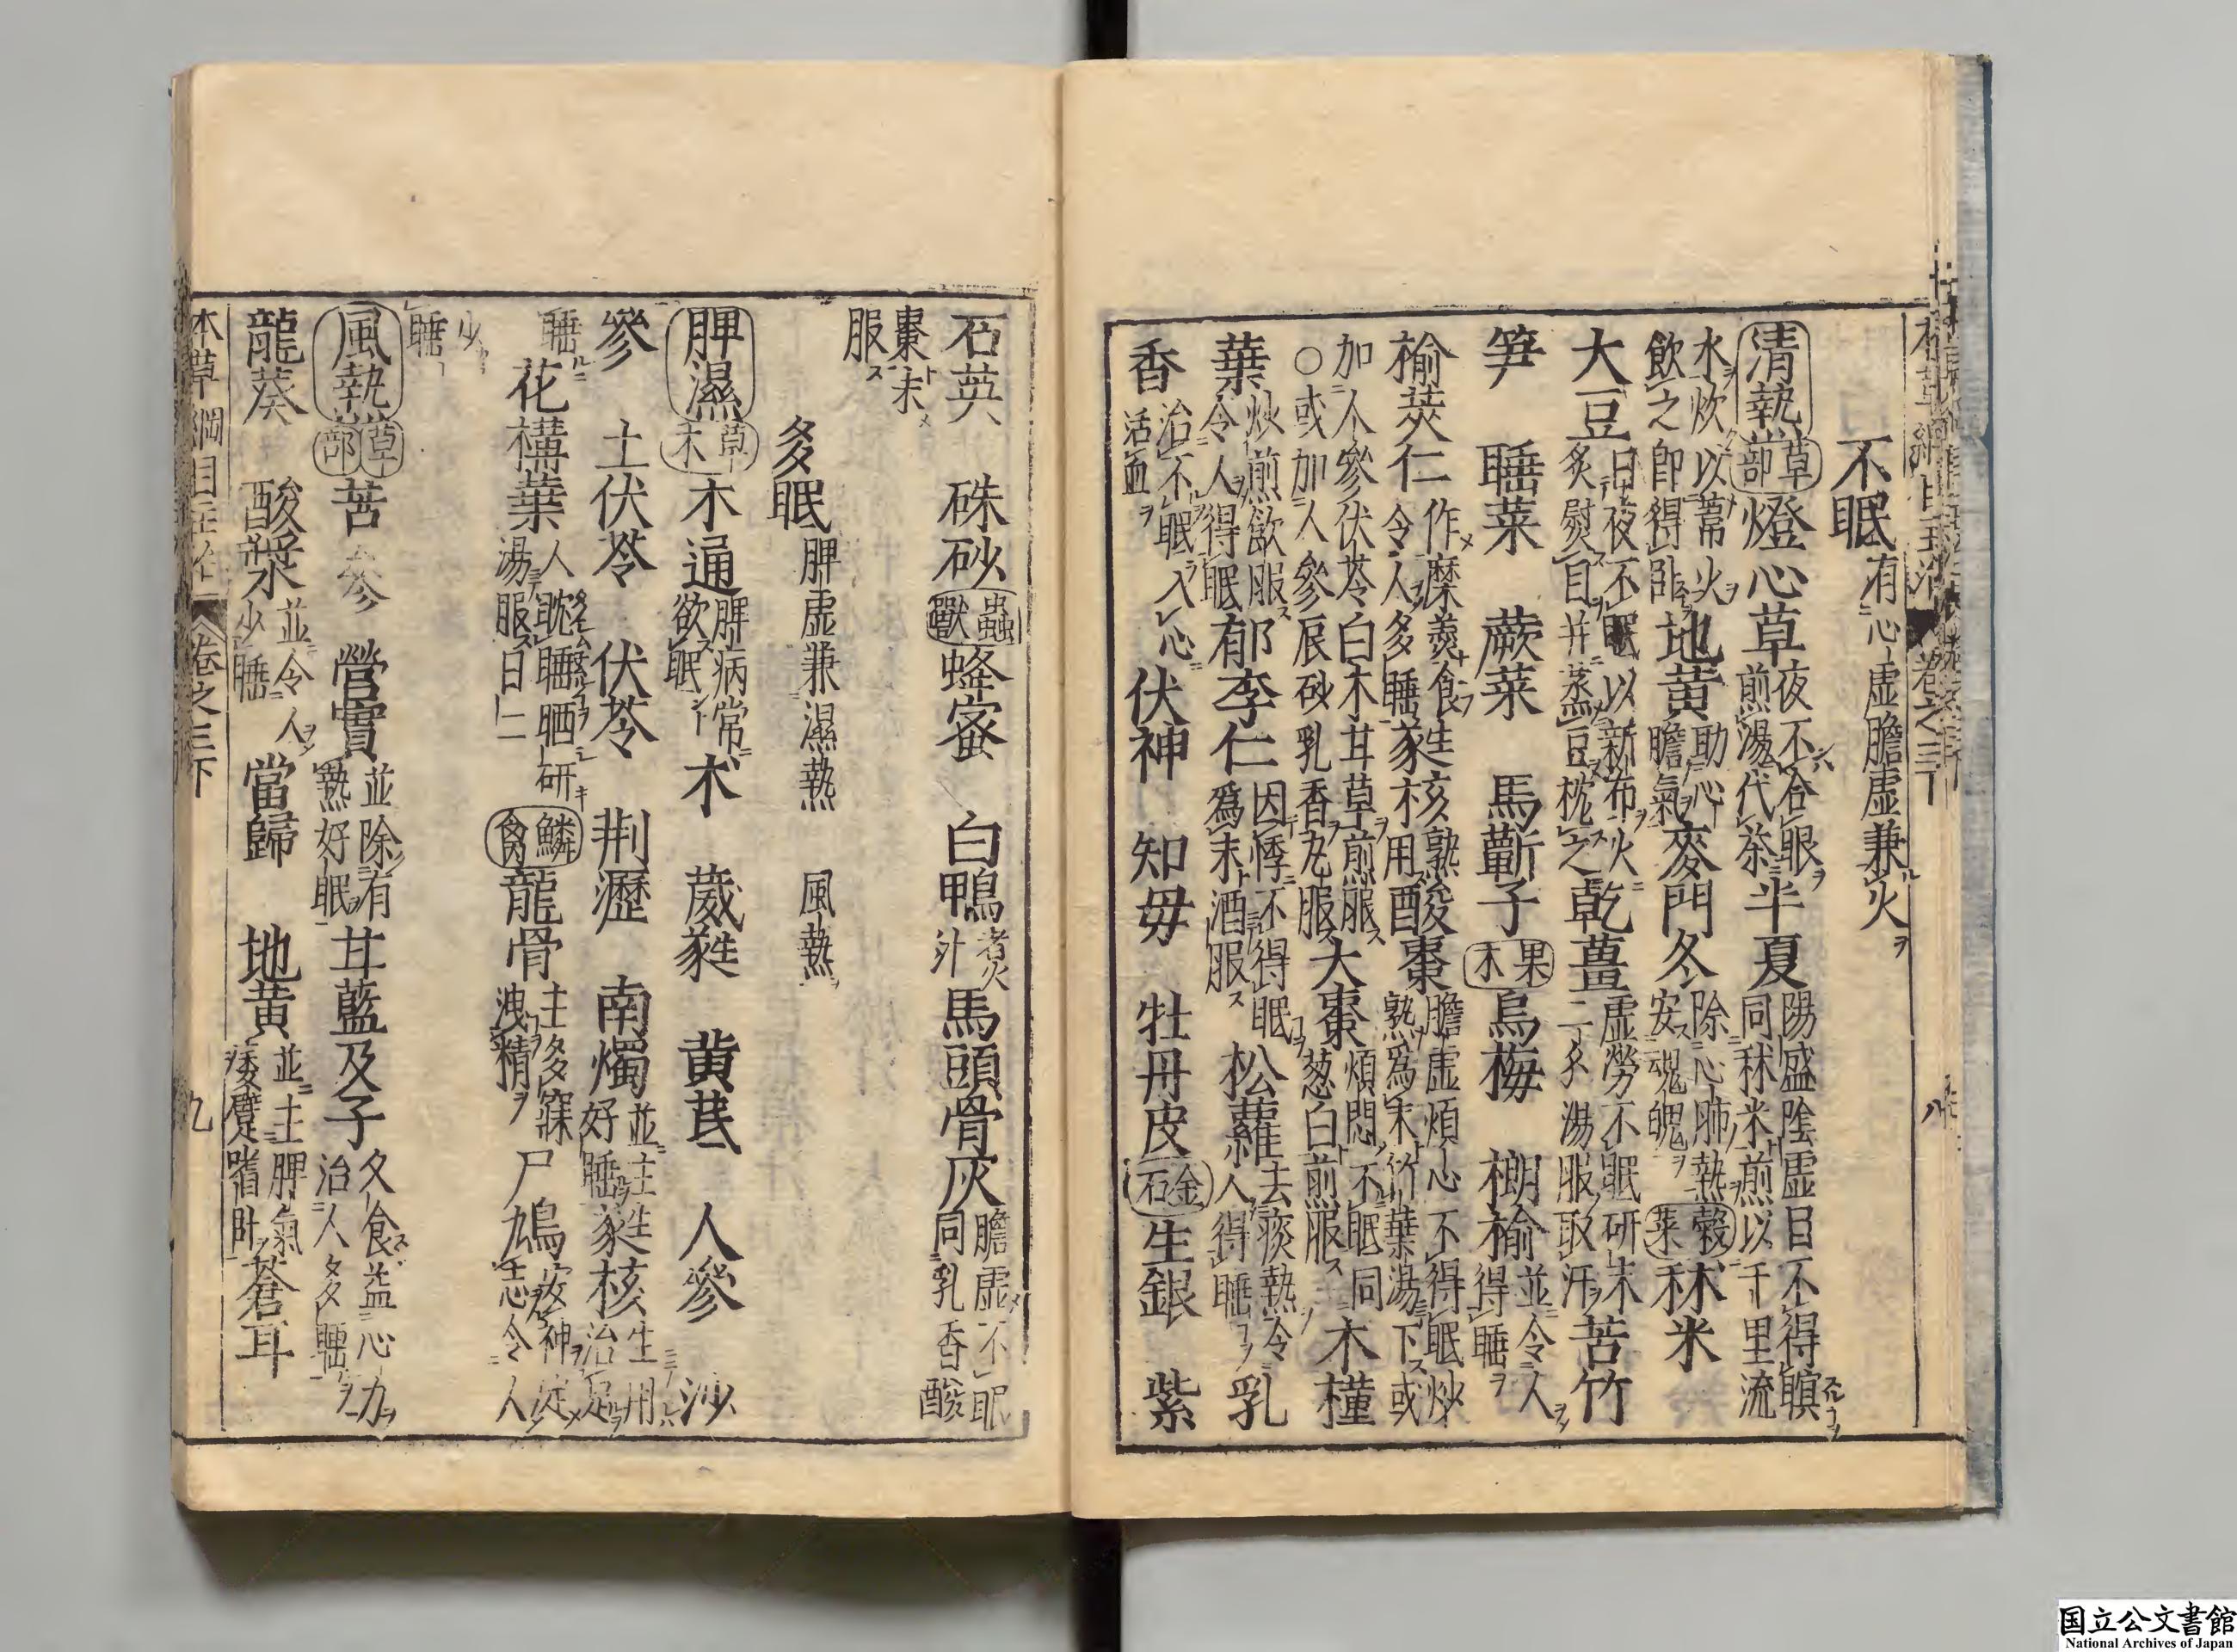 本草綱目主治 卷之三下 八
不眠 有心虛膽虛兼火
清熱 草部 燈心草 夜不合眼煎湯代茶 半夏 陽盛陰虛目不得瞑同秫米煎以千里流
水炊以葦火飲之即得卧 地黃 助心膽氣 麥門冬 除心肺熱安魂魄 穀菜 秫米
大豆 日夜不眠以新布火炙熨目并蒸豆枕之 乾薑 虛勞不眠研末二丁夕湯服取汗 苦竹
笋 睡菜 蕨菜 馬蘄子 果木 烏梅 榔榆 並令人得睡
榆莢仁 作糜羹食令人多睡 蕤核 熟用 酸棗 膽虛煩心不得眠炒熟爲末竹葉湯下或
加人參伏苓白朮甘草煎服○或加人參辰砂乳香丸服 大棗 煩悶不眠同葱白煎服 木槿
葉 炒煎飲服令人得眠 郁李仁 因悸不得眠爲末酒服 松蘿 去痰熱令人得睡 乳
香 治不眠入心活血 伏神 知母 牡丹皮 金石 生銀 紫
石英 硃砂 蟲獸 蜂蜜 白鴨 煮汁 馬頭骨灰 膽虛不眠同乳香酸
棗末服
多眠 脾虛兼濕熱 風熱
脾濕 草木 木通 脾病常欲眠 朮 葳蕤 黃芪 人參 沙
參 土伏苓 伏苓 荆瀝 南燭 並主好睡 蕤核 生用治足
睡 花構葉 人耽睡晒研湯服日二 鱗禽 龍骨 主多寐洩精 尸鳩 安神定志令人
少睡
風熱 草部 苦參 營實 並除有熱好眠 甘藍及子 久食益心力治人多睡
龍葵 酸漿 並令人少睡 當歸 地黃 並主脾氣痿躄嗜卧 蒼耳
本草綱目主治 卷之三下 九
国立公文書館
National Archives of Japan